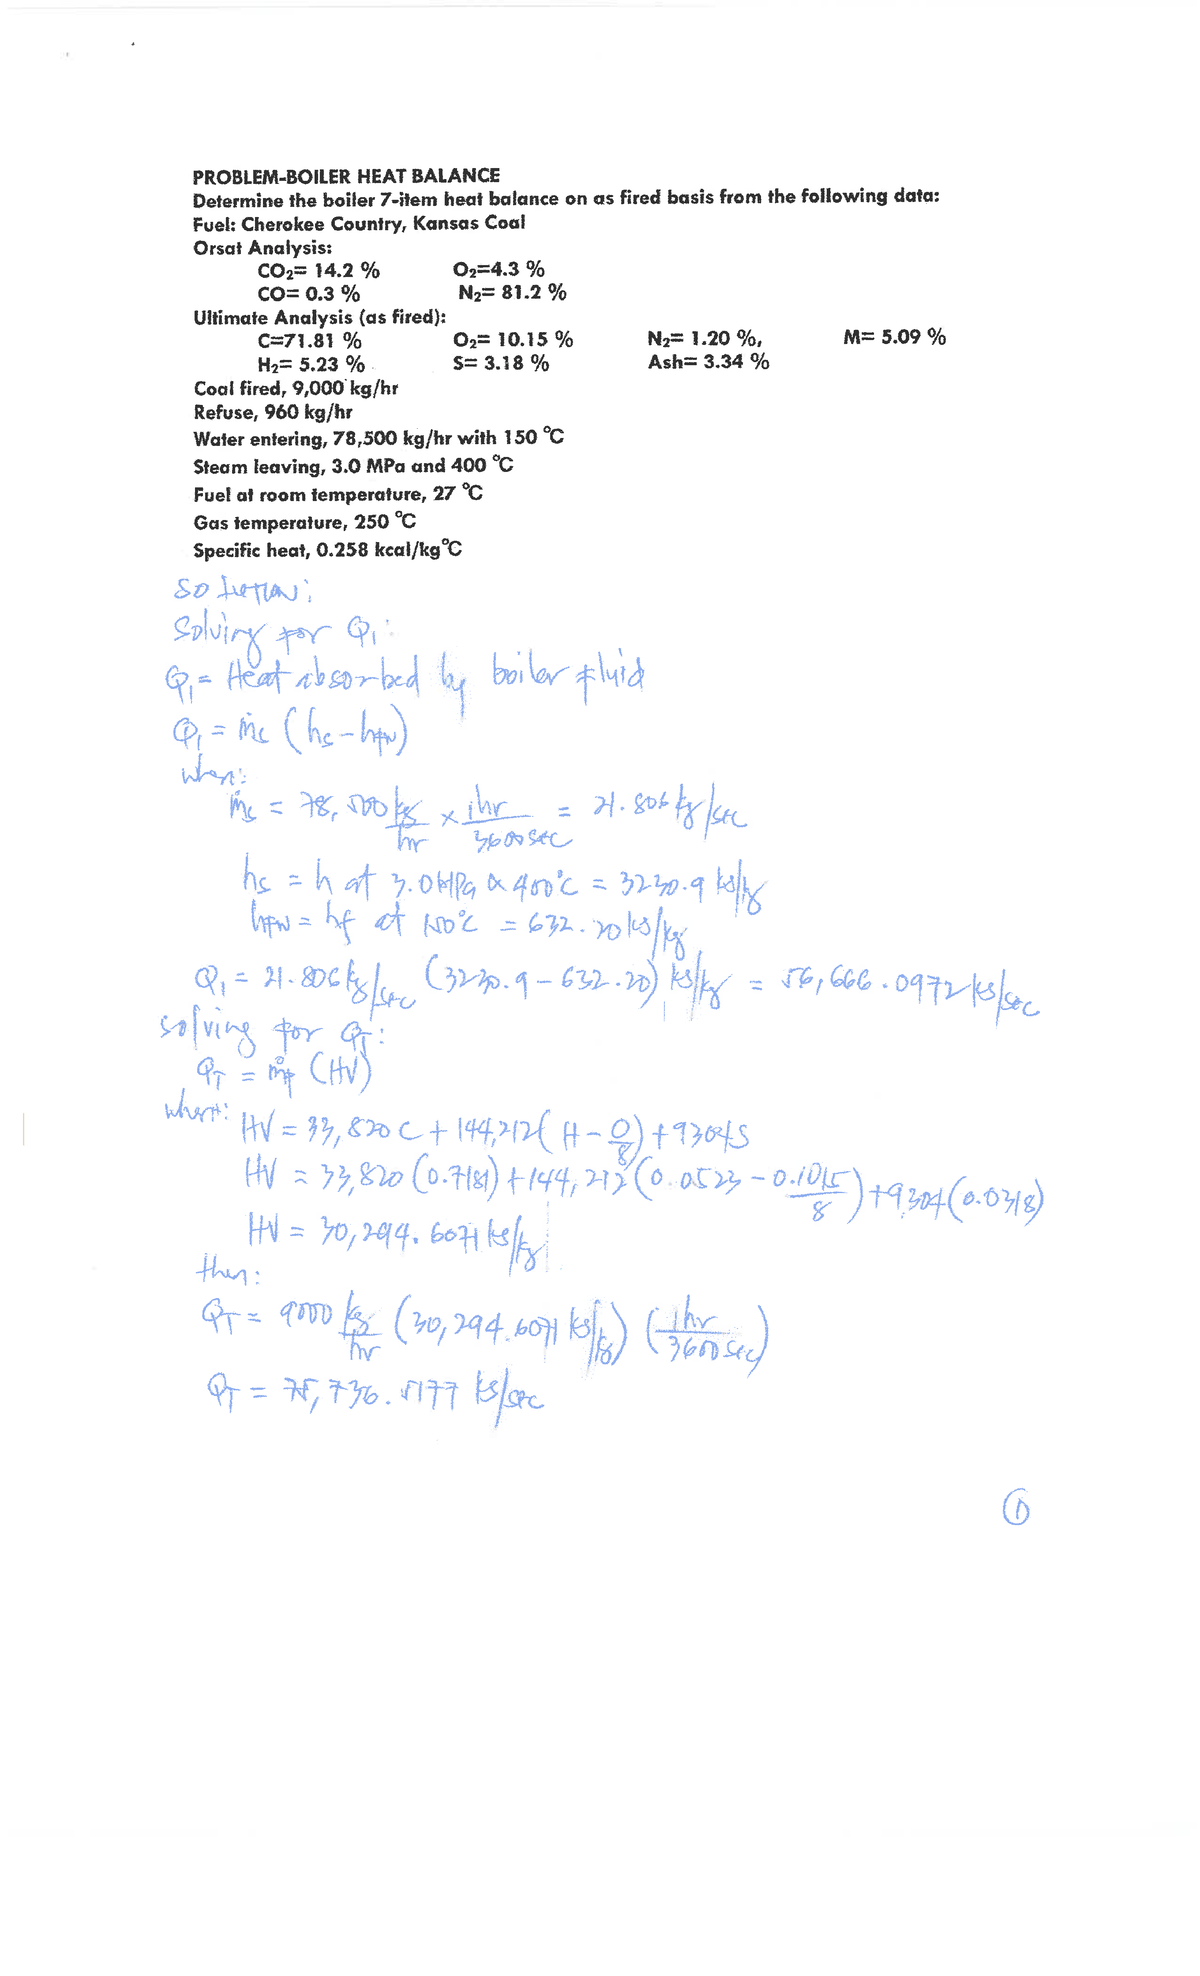 PROBLEM-BOILER HEAT BALANCE
Determine the boiler 7-item heat balance on as fired basis from the following data:
Fuel: Cherokee Country, Kansas Coal
Orsat Analysis:
CO₂= 14.2 % O₂=4.3 %
CO= 0.3 % N₂= 81.2 %
Ultimate Analysis (as fired):
C=71.81 % O₂= 10.15 % N₂= 1.20 %, M= 5.09 %
H₂= 5.23 % S= 3.18 % Ash= 3.34 %
Coal fired, 9,000 kg/hr
Refuse, 960 kg/hr
Water entering, 78,500 kg/hr with 150 °C
Steam leaving, 3.0 MPa and 400 °C
Fuel at room temperature, 27 °C
Gas temperature, 250 °C
Specific heat, 0.258 kcal/kg°C
Solution:
Solving for Q₁:
Q₁ = Heat absorbed by boiler fluid
Q₁ = ṁs (hs - hfw)
where:
ṁs = 78,500 kg/hr × 1hr/3600sec = 21.806 kg/sec
hs = h at 3.0 MPa & 400°C = 3230.9 kJ/kg
hfw = hf at 150°C = 632.20 kJ/kg
Q₁ = 21.806 kg/sec (3230.9 - 632.20) kJ/kg = 56,666.0972 kJ/sec
solving for QT:
QT = ṁf (HV)
where:
HV = 33,820 C + 144,212 (H - O/8) + 9304S
HV = 33,820 (0.7181) + 144,212 (0.0523 - 0.1015/8) + 9,304 (0.0318)
HV = 30,294.6071 kJ/kg
then:
QT = 9000 kg/hr (30,294.6071 kJ/kg) (1hr/3600sec)
QT = 75,736.5177 kJ/sec
①